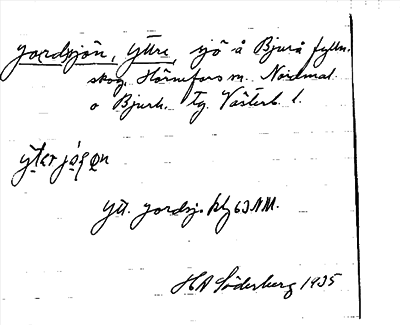 Jordsjön, Yttre, sjö å Bjurå fylln.
skog, Hörnefors m. Nordmal.
o Bjurh. tg. Västerb. l.
yter jọṣ ọn
Ytt. Jordsj. ktg 63 NM.
HA Söderberg 1935